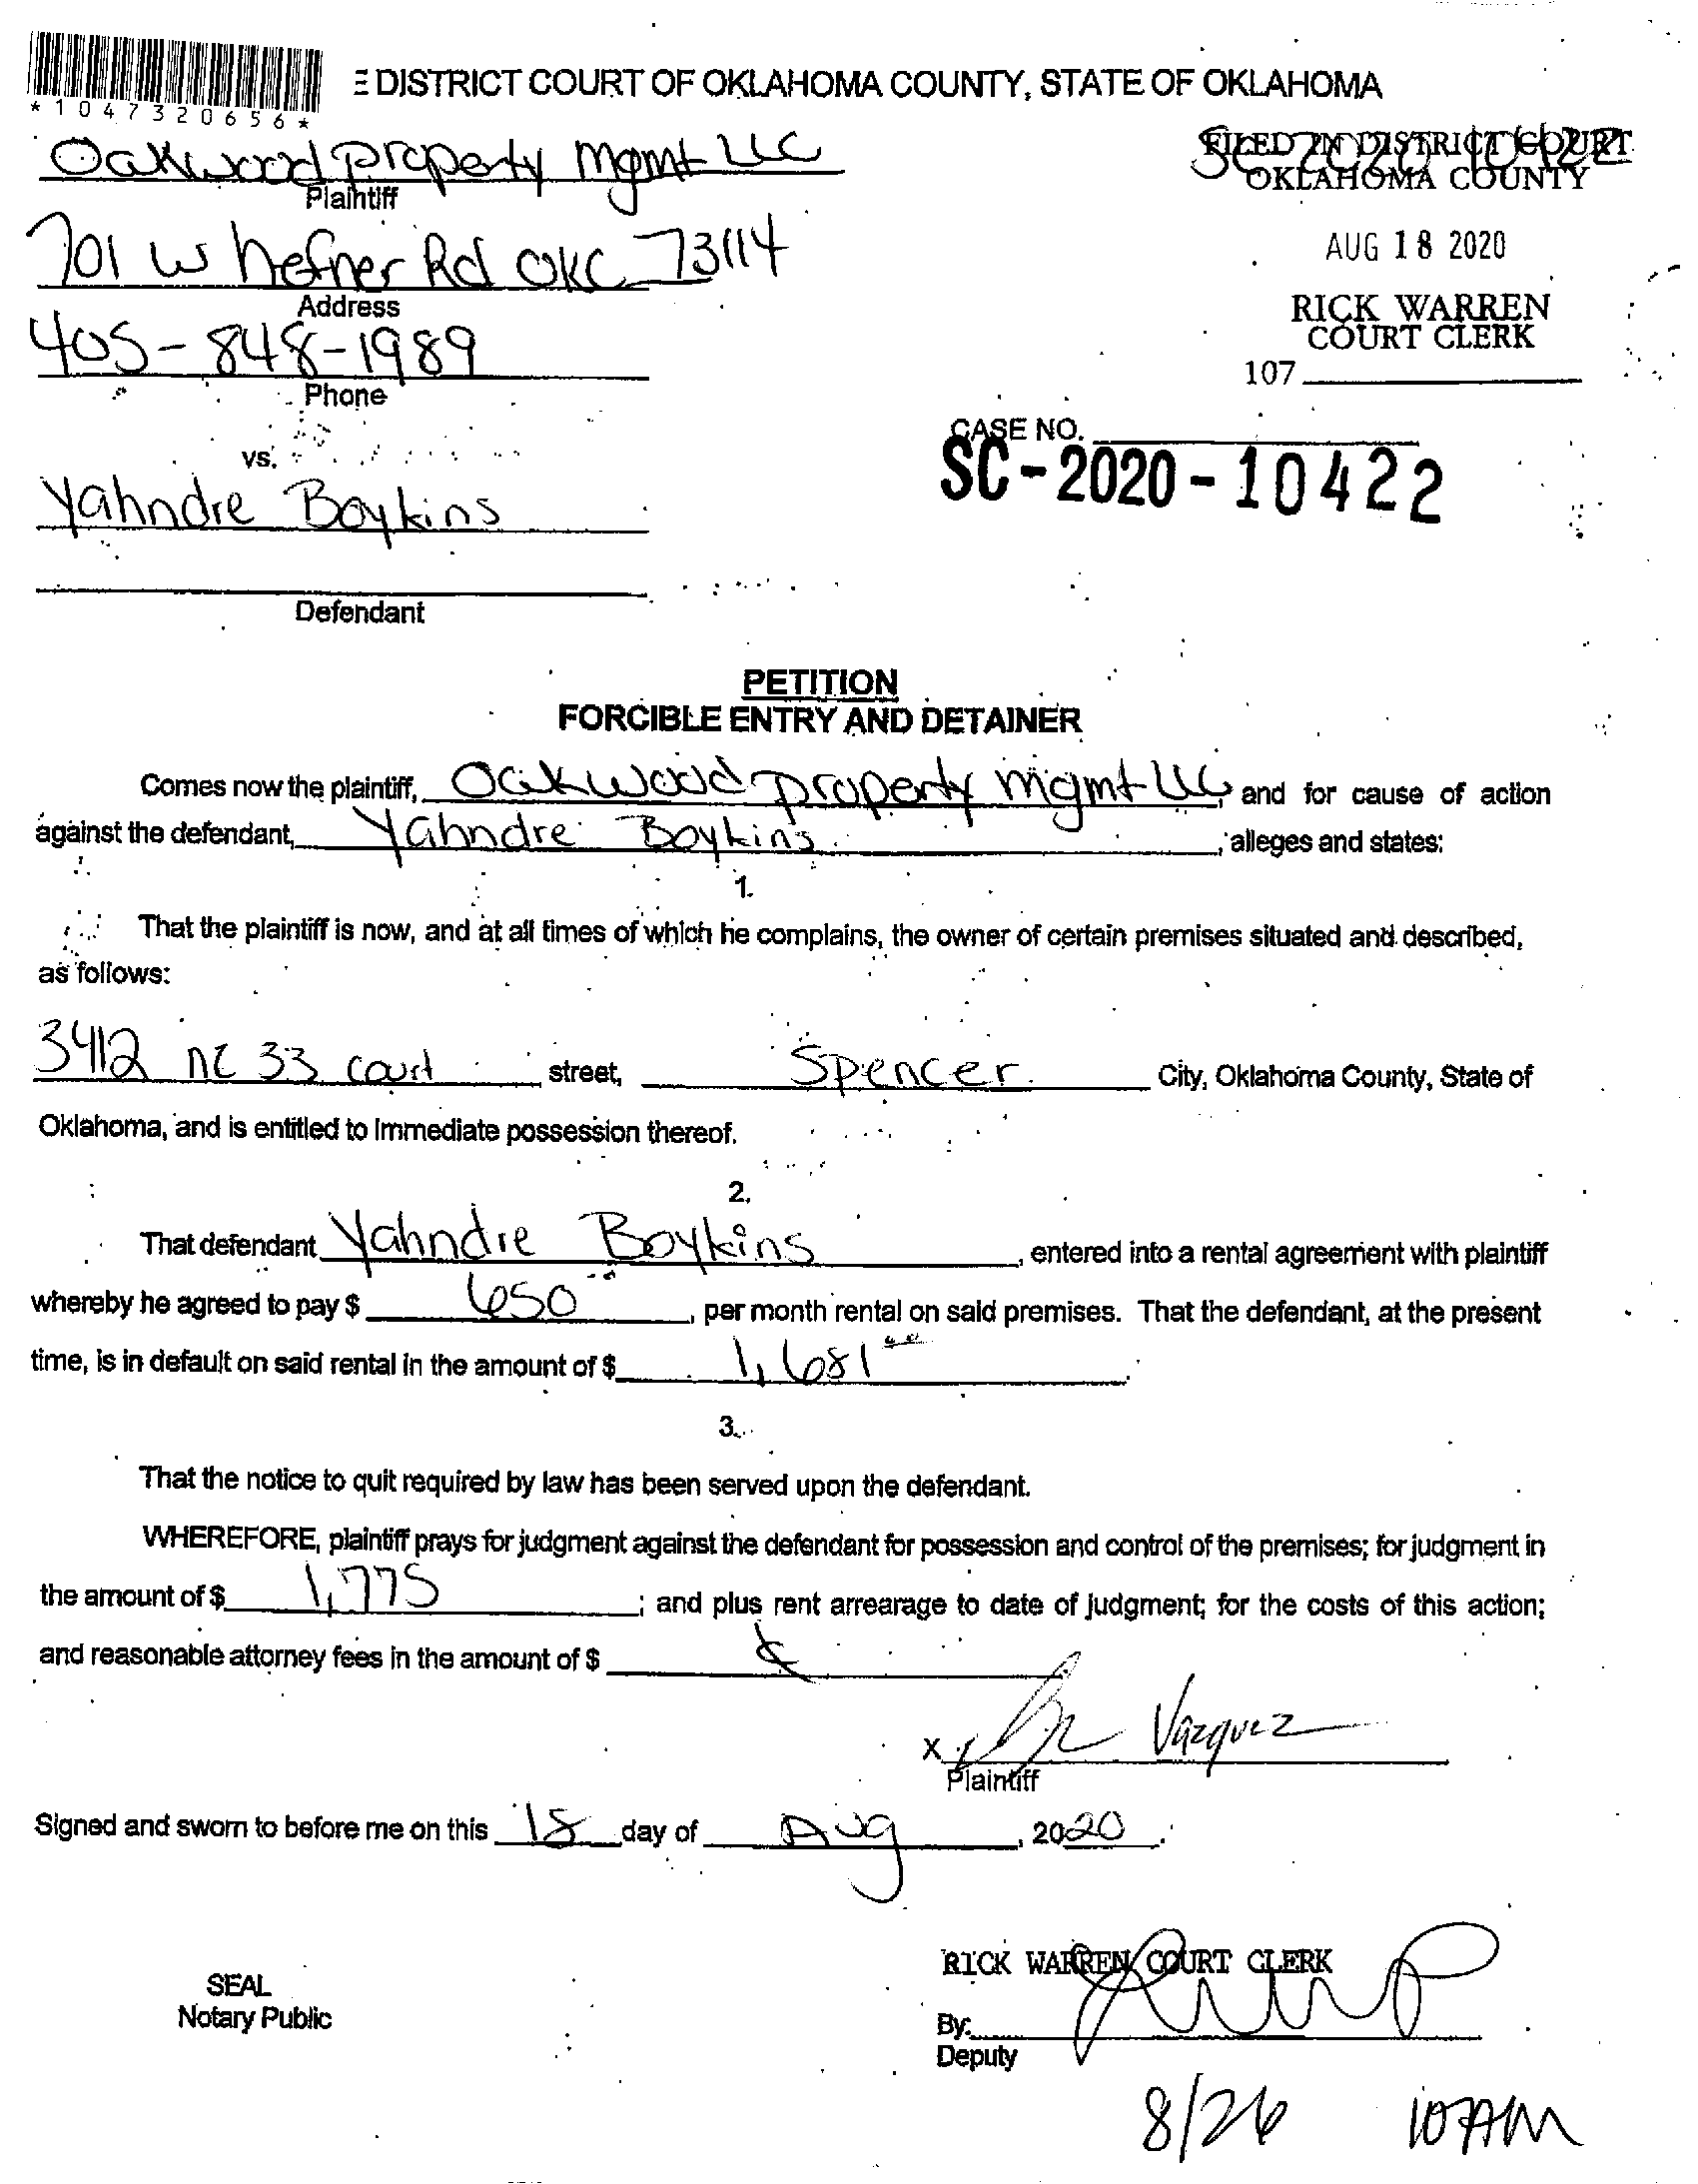 E DISTRICT COURT OF OKLAHOMA COUNTY, STATE OF OKLAHOMA
*1047320656*
Oakwood Property Mgmt LLC
Plaintiff
SC 2020 10422
FILED IN DISTRICT COURT
OKLAHOMA COUNTY
701 W hefner Rd OKC 73114
Address
AUG 18 2020
405-848-1989
Phone
RICK WARREN
COURT CLERK
107
vs.
CASE NO.
SC-2020-10422
Yahndre Boykins
Defendant
PETITION
FORCIBLE ENTRY AND DETAINER
Comes now the plaintiff, Oakwood Property Mgmt LLC, and for cause of action
against the defendant, Yahndre Boykins, alleges and states:
1.
That the plaintiff is now, and at all times of which he complains, the owner of certain premises situated and described,
as follows:
3412 NE 33 Court street, Spencer City, Oklahoma County, State of
Oklahoma, and is entitled to immediate possession thereof.
2.
That defendant Yahndre Boykins, entered into a rental agreement with plaintiff
whereby he agreed to pay $ 650, per month rental on said premises. That the defendant, at the present
time, is in default on said rental in the amount of $ 1,681.
3.
That the notice to quit required by law has been served upon the defendant.
WHEREFORE, plaintiff prays for judgment against the defendant for possession and control of the premises; for judgment in
the amount of $ 1,775; and plus rent arrearage to date of judgment; for the costs of this action;
and reasonable attorney fees in the amount of $
X Vazquez
Plaintiff
Signed and sworn to before me on this 18 day of Aug, 2020.
RICK WARREN COURT CLERK
SEAL
Notary Public
By:
Deputy
8/26 10 AM